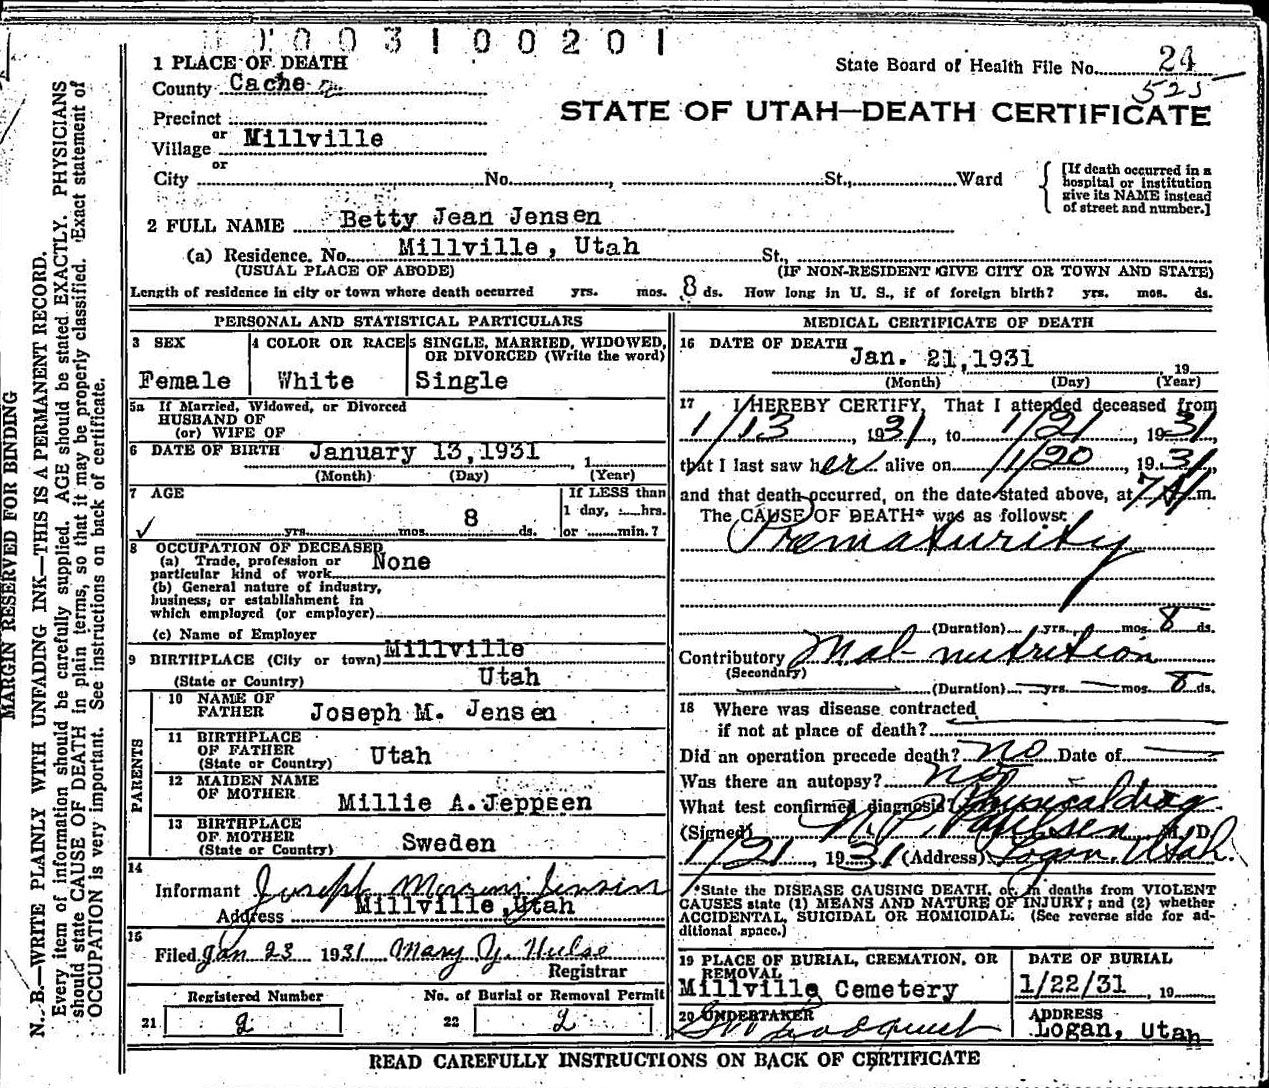 1003100201
1 PLACE OF DEATH
County Cache
State Board of Health File No. 24
525
STATE OF UTAH—DEATH CERTIFICATE
Precinct
or
Village Millville
or
City No. , St., Ward
[If death occurred in a
hospital or institution
give its NAME instead
of street and number.]
2 FULL NAME Betty Jean Jensen
(a) Residence. No. Millville, Utah St.,
(USUAL PLACE OF ABODE) (IF NON-RESIDENT GIVE CITY OR TOWN AND STATE)
Length of residence in city or town where death occurred yrs. mos. 8 ds. How long in U. S., if of foreign birth? yrs. mos. ds.
PERSONAL AND STATISTICAL PARTICULARS
3 SEX
Female
4 COLOR OR RACE
White
5 SINGLE, MARRIED, WIDOWED,
OR DIVORCED (Write the word)
Single
5a If Married, Widowed, or Divorced
HUSBAND OF
(or) WIFE OF
6 DATE OF BIRTH January 13, 1931 , 1
(Month) (Day) (Year)
7 AGE
yrs. mos. 8 ds.
If LESS than
1 day, hrs.
or min.?
8 OCCUPATION OF DECEASED
(a) Trade, profession or
particular kind of work None
(b) General nature of industry,
business, or establishment in
which employed (or employer)
(c) Name of Employer
9 BIRTHPLACE (City or town) Millville
(State or Country) Utah
PARENTS
10 NAME OF
FATHER Joseph M. Jensen
11 BIRTHPLACE
OF FATHER
(State or Country) Utah
12 MAIDEN NAME
OF MOTHER Millie A. Jeppsen
13 BIRTHPLACE
OF MOTHER
(State or Country) Sweden
14
Informant Joseph Jensen
Address Millville, Utah
15
Filed Jan 23 1931 Mary Y. Hulse
Registrar
Registered Number
21 2
No. of Burial or Removal Permit
22 2
MEDICAL CERTIFICATE OF DEATH
16 DATE OF DEATH
Jan. 21, 1931 19
(Month) (Day) (Year)
17 I HEREBY CERTIFY, That I attended deceased from
1/13, 1931, to 1/21, 1931,
that I last saw her alive on 1/20, 1931,
and that death occurred, on the date stated above, at 7 A m.
The CAUSE OF DEATH* was as follows:
Prematurity
(Duration) yrs. mos. 8 ds.
Contributory Mal-nutrition
(Secondary)
(Duration) yrs. mos. 8 ds.
18 Where was disease contracted
if not at place of death?
Did an operation precede death? no Date of
Was there an autopsy? no
What test confirmed diagnosis? Physical diag
(Signed) M. D.
1/21, 1931 (Address) Logan, Utah.
*State the DISEASE CAUSING DEATH, or, in deaths from VIOLENT
CAUSES state (1) MEANS AND NATURE OF INJURY; and (2) whether
ACCIDENTAL, SUICIDAL OR HOMICIDAL. (See reverse side for ad-
ditional space.)
19 PLACE OF BURIAL, CREMATION, OR
REMOVAL
Millville Cemetery
DATE OF BURIAL
1/22/31, 19
20 UNDERTAKER
ADDRESS
Logan, Utah
READ CAREFULLY INSTRUCTIONS ON BACK OF CERTIFICATE
MARGIN RESERVED FOR BINDING
N. B.—WRITE PLAINLY WITH UNFADING INK—THIS IS A PERMANENT RECORD.
Every item of information should be carefully supplied. AGE should be stated EXACTLY. PHYSICIANS
should state CAUSE OF DEATH in plain terms, so that it may be properly classified. Exact statement of
OCCUPATION is very important. See instructions on back of certificate.